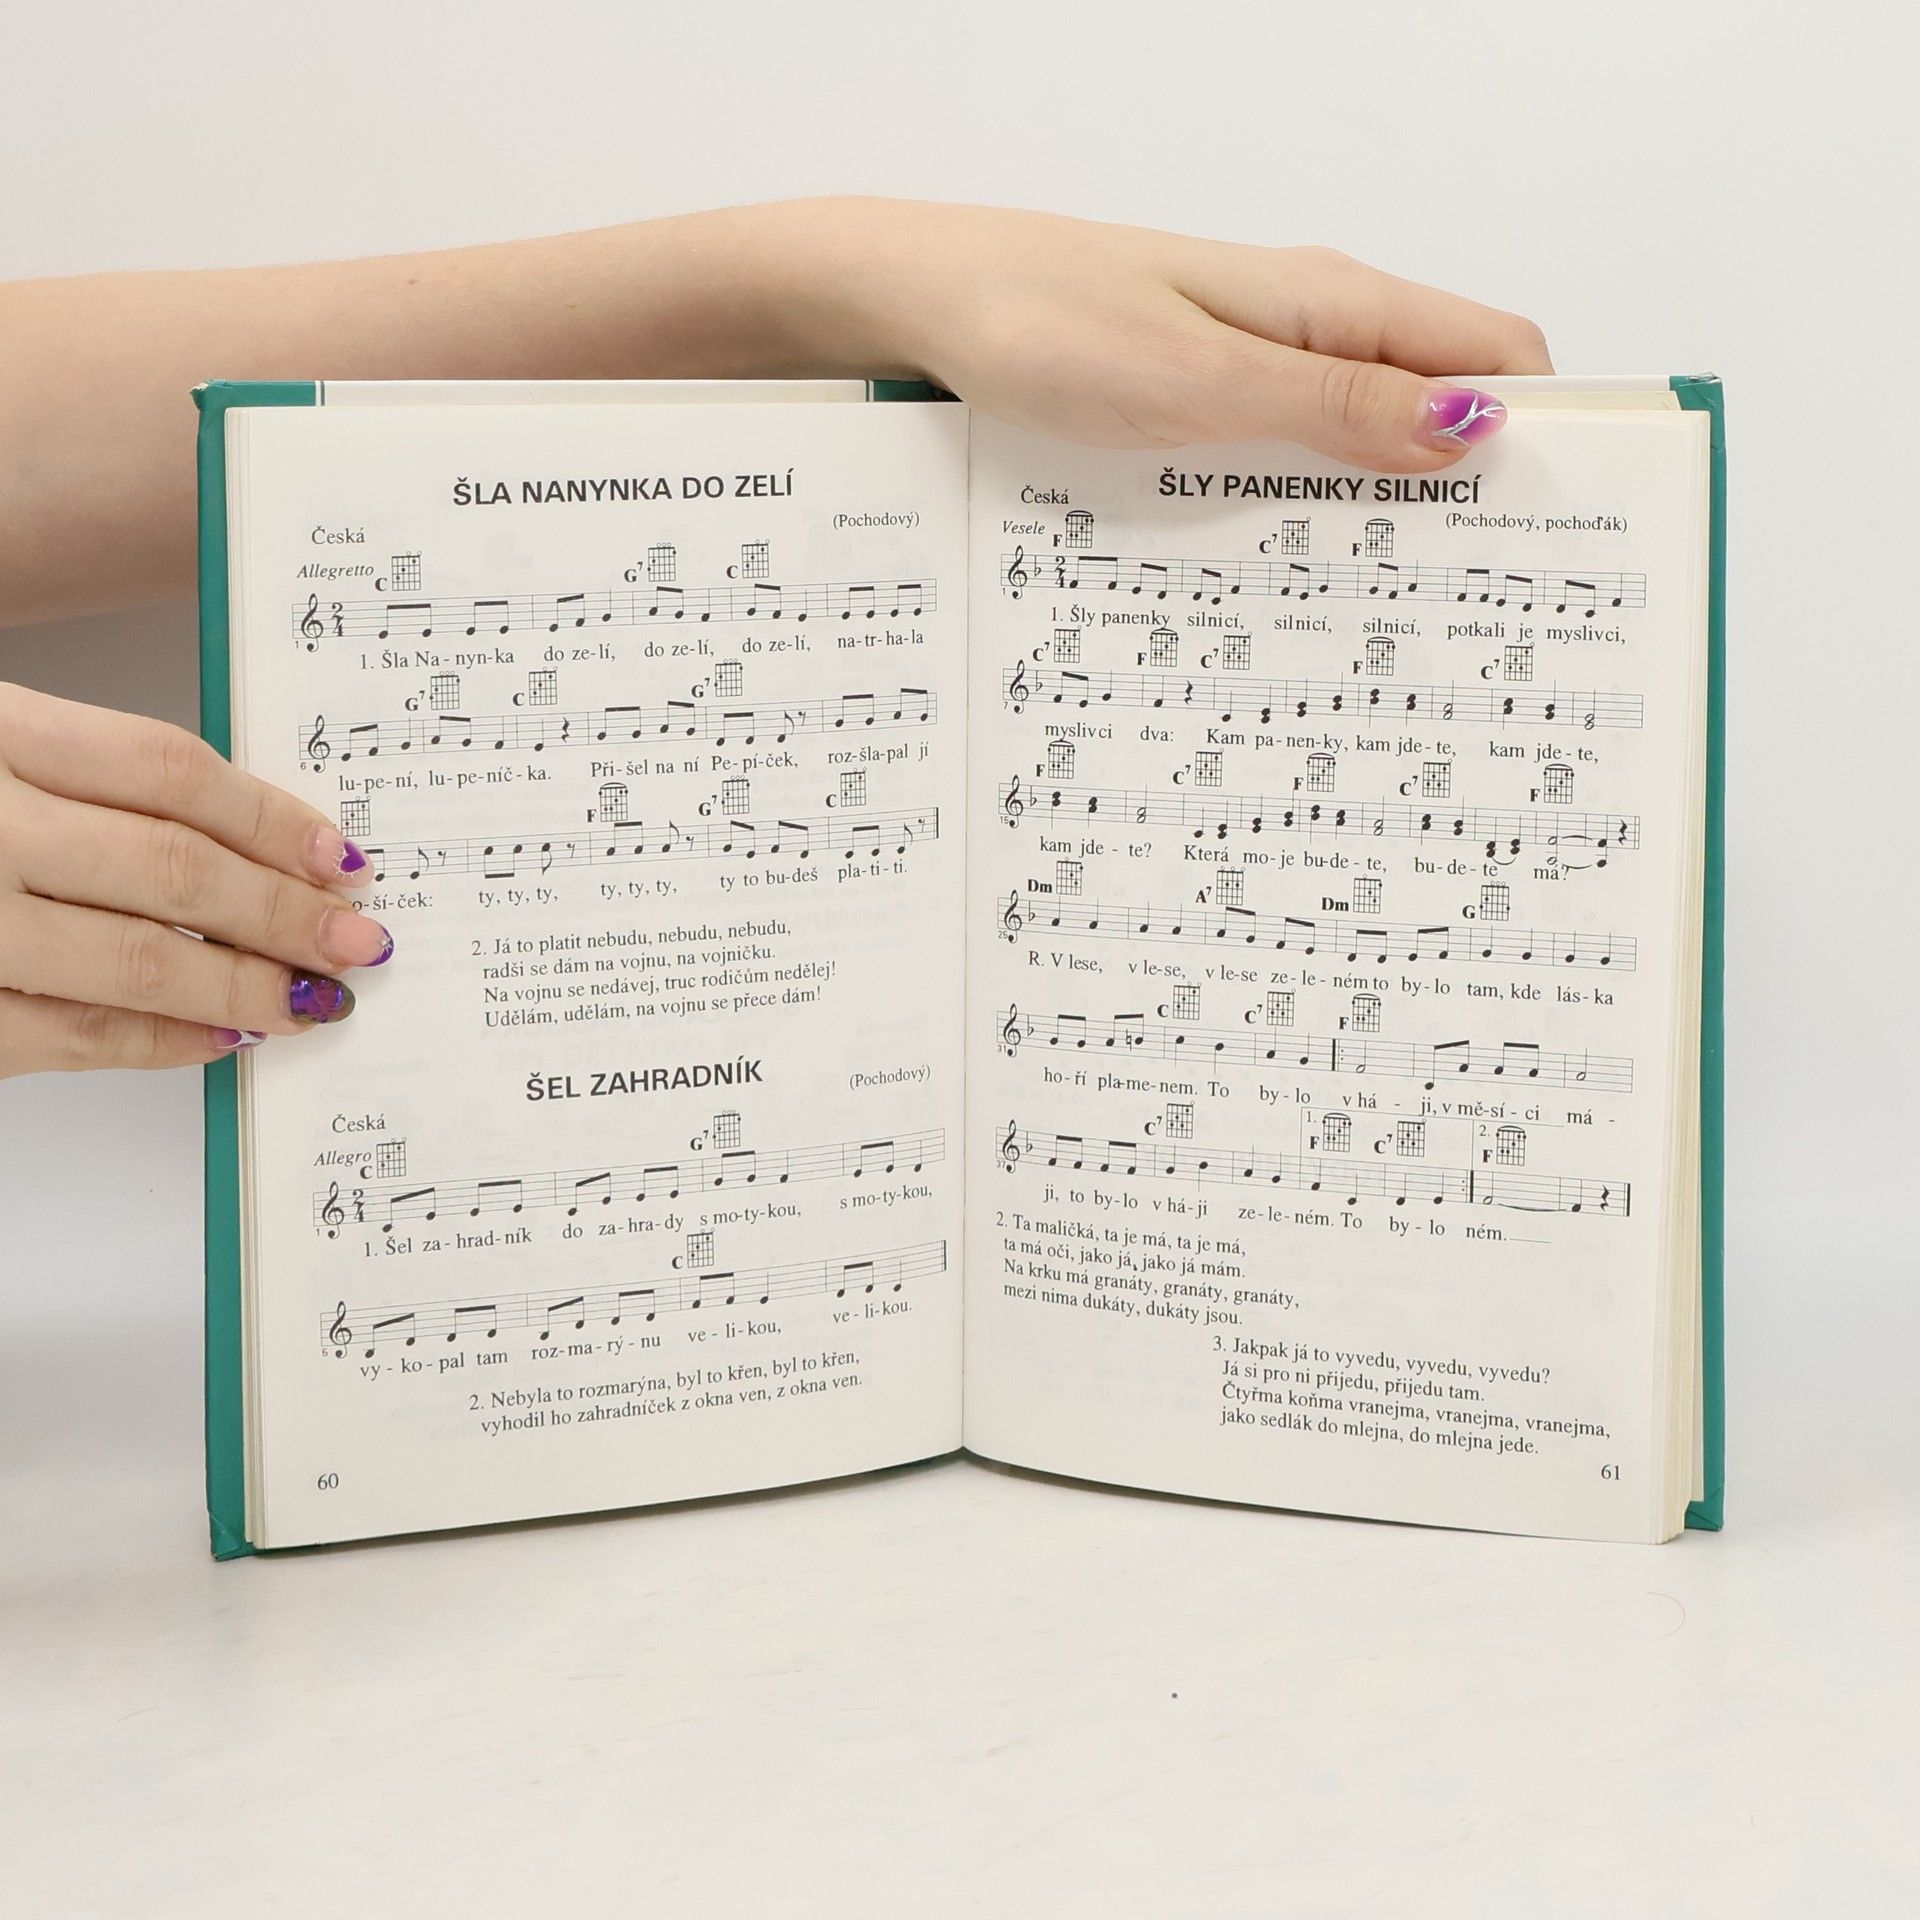 ŠLA NANYNKA DO ZELÍ
Česká
(Pochodový)
Allegretto
C G7 C
1
1. Šla Na - nyn-ka do ze-lí, do ze-lí, do ze-lí, na-tr-ha-la
G7 C G7
6
lu-pe-ní, lu-pe-níč-ka. Při-šel na ní Pe-pí-ček, roz-šla-pal jí
F G7 C
ší-ček: ty, ty, ty, ty, ty, ty, ty to bu-deš pla-ti-ti.
2. Já to platit nebudu, nebudu, nebudu,
radši se dám na vojnu, na vojničku.
Na vojnu se nedávej, truc rodičům nedělej!
Udělám, udělám, na vojnu se přece dám!
ŠEL ZAHRADNÍK
(Pochodový)
Česká
Allegro
C G7
1
1. Šel za-hrad-ník do za-hra-dy s mo-ty-kou, s mo-ty-kou,
C
5
vy - ko - pal tam roz-ma-rý-nu ve - li-kou, ve - li-kou.
2. Nebyla to rozmarýna, byl to křen, byl to křen,
vyhodil ho zahradníček z okna ven, z okna ven.
60
ŠLY PANENKY SILNICÍ
Česká
(Pochodový, pochoďák)
Vesele
F C7 F
1
1. Šly panenky silnicí, silnicí, silnicí, potkali je myslivci,
C7 F C7 F C7
7
myslivci dva: Kam pa-nen-ky, kam jde-te, kam jde-te,
F C7 F C7 F
15
kam jde - te? Která mo-je bu-de-te, bu-de-te má?
Dm A7 Dm G
25
R. V lese, v le-se, v le-se ze-le-ném to by-lo tam, kde lás-ka
C C7 F
31
ho-ří pla-me-nem. To by-lo v há - ji, v mě-sí-ci má -
C7 1. F C7 2. F
37
ji, to by-lo v há-ji ze-le-ném. To by-lo ném.
2. Ta maličká, ta je má, ta je má,
ta má oči, jako já, jako já mám.
Na krku má granáty, granáty, granáty,
mezi nima dukáty, dukáty jsou.
3. Jakpak já to vyvedu, vyvedu, vyvedu?
Já si pro ni přijedu, přijedu tam.
Čtyřma koňma vranejma, vranejma, vranejma,
jako sedlák do mlejna, do mlejna jede.
61